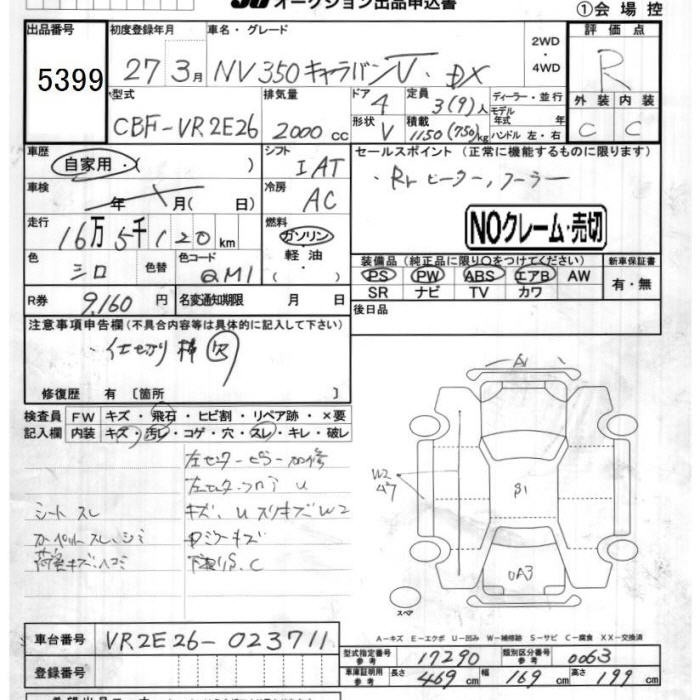 オークション出品申込書
①会場控
出品番号 5399
初度登録年月 27年3月
車名・グレード NV350キャラバンV・DX
2WD・4WD
評価点 R
外装 C 内装 C
型式 CBF-VR2E26
排気量 2000cc
ドア 4
形状 V
定員 3(9)人
積載 1150(750)kg
ディーラー・並行
モデル年式 年式
ハンドル 左・右
車歴 自家用・( )
シフト IAT
セールスポイント (正常に機能するものに限ります)
・Rrヒーター,クーラー
車検 年 月( 日)
冷房 AC
NOクレーム・売切
走行 16万5千120km
燃料 ガソリン・軽油・( )
色 シロ 色替 色コード QM1
装備品 (純正品に限り○をつけてください)
PS PW ABS エアB AW
SR ナビ TV カワ
新車保証書 有・無
R券 9,160円
名変通知期限 月 日
後日品
注意事項申告欄 (不具合内容等は具体的に記入して下さい)
修復歴 有 〔箇所 〕
検査員記入欄
FW キズ・飛石・ヒビ割・リペア跡・×要
内装 キズ・汚レ・コゲ・穴・スレ・キレ・破レ
左センターピラー加修
左センターフロア U
シートスレ
キズ、Uスリキズ W2
カーペットスレ、シミ
荷室キズ、ヘコミ
下廻りS.C
A1
W2
β1
UA3
スペア
A-キズ E-エクボ U-凹み W-補修跡 S-サビ C-腐食 XX-交換済
車台番号 VR2E26-023711
登録番号
型式指定番号 参考 17290
類別区分番号 参考 0063
車庫証明用 参考 長さ 469cm 幅 169cm 高さ 199cm